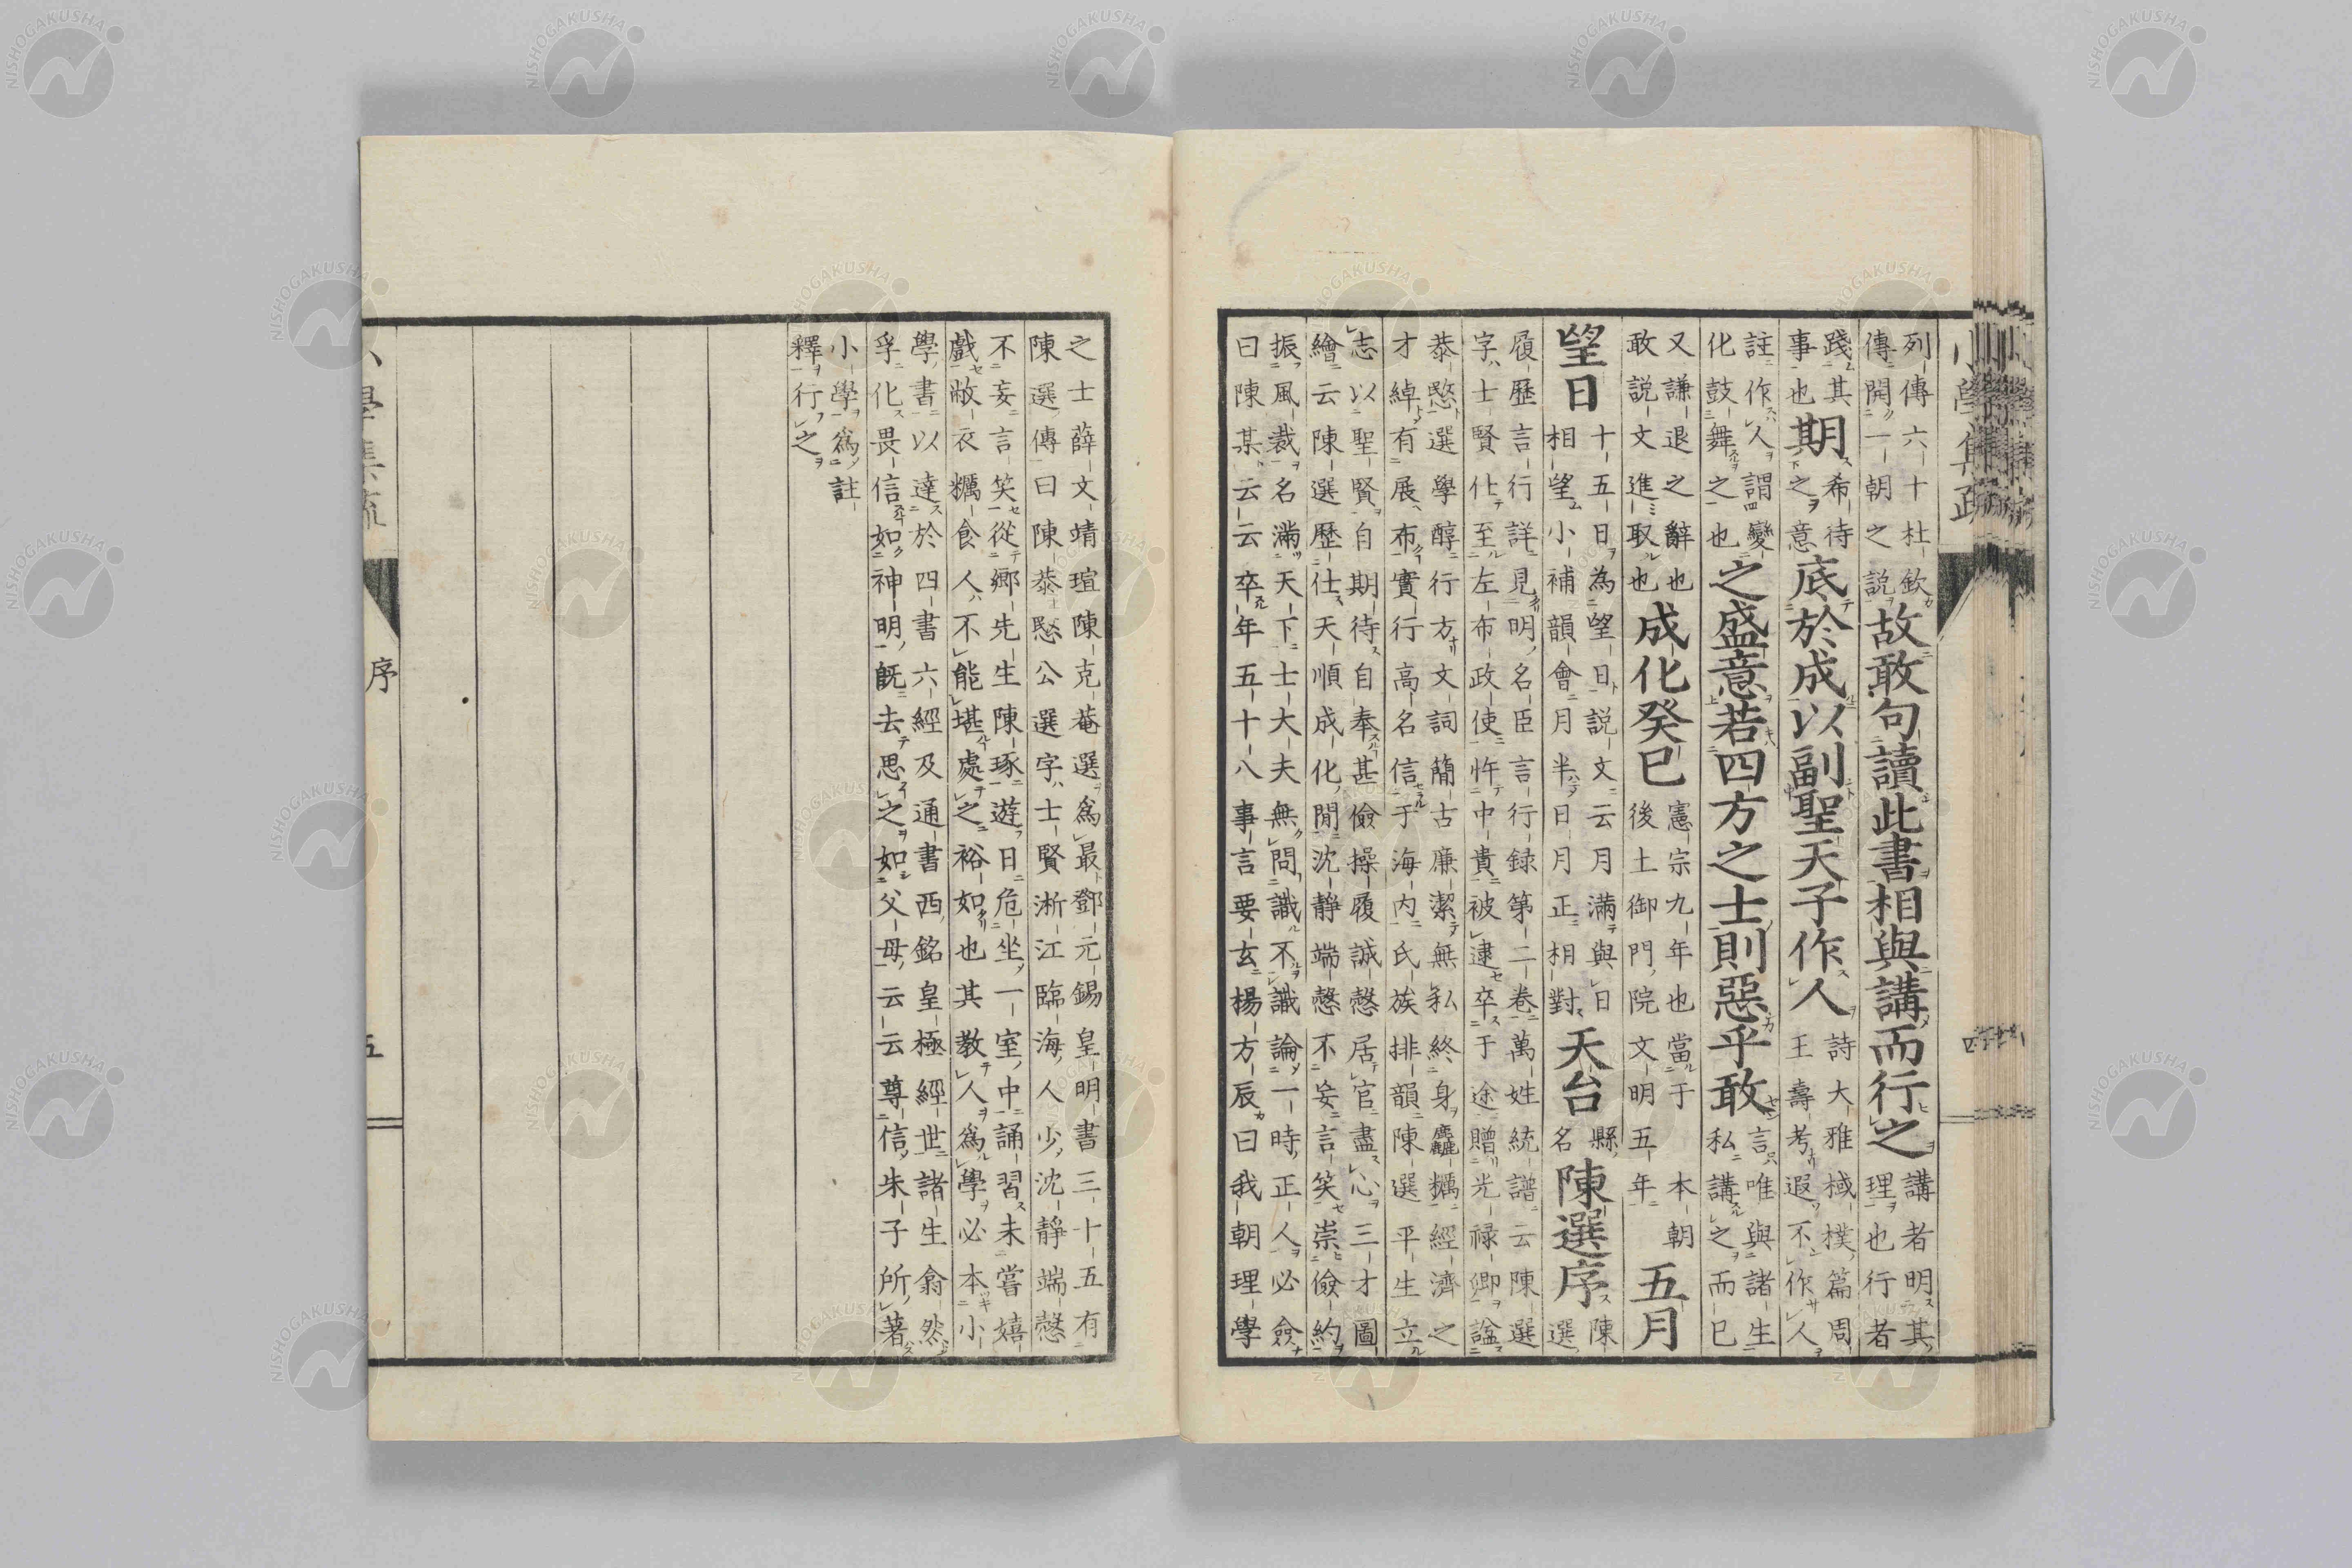 列傳六十杜欽
傳開一朝之説
故敢句讀此書相與講而行之
講者明其
理也行者
踐其
事也
期
希待
之意
底於成以副聖天子作人
詩大雅棫樸篇周
王壽考遐不作人
註作人謂變
化鼓舞之也
之盛意若四方之士則惡乎敢
言唯與諸生
私講之而已
又謙退之辭也
敢説文進取也
成化癸巳
憲宗九年也當于本朝
後土御門院文明五年
五月
望日
十五日為望日説文云月滿與日
相望小補韻會月半日月正相對
天台
縣
名
陳選序
陳
選
履歷言行詳見明名臣言行録第二卷萬姓統譜云陳選
字士賢仕至左布政使忤中貴被逮卒于途贈光禄卿諡
恭愍選學醇行方文詞簡古廉潔無私終身麤糲經濟之
才綽有展布實行高名信于海内氏族排韻陳選平生立
志以聖賢自期待自奉甚儉操履誠慤居官盡心三才圖
繪云陳選歷仕天順成化閒沈靜端慤不妄言笑崇儉約
振風裁名滿天下士大夫無問識不識論一時正人必僉
曰陳某云云卒年五十八事言要玄楊方辰曰我朝理學
之士薛文靖瑄陳克菴選爲最鄧元錫皇明書三十五有
陳選傳曰陳恭愍公選字士賢淅江臨海人少沈靜端慤
不妄言笑從鄉先生陳琢遊日危坐一室中誦習未嘗嬉
戲敝衣糲食人不能堪處之裕如也其教人爲學必本小
學書以達於四書六經及通書西銘皇極經世諸生翕然
孚化畏信如神明既去思之如父母云云尊信朱子所著
小學爲註
釋行之
序
五
NISHOGAKUSHA